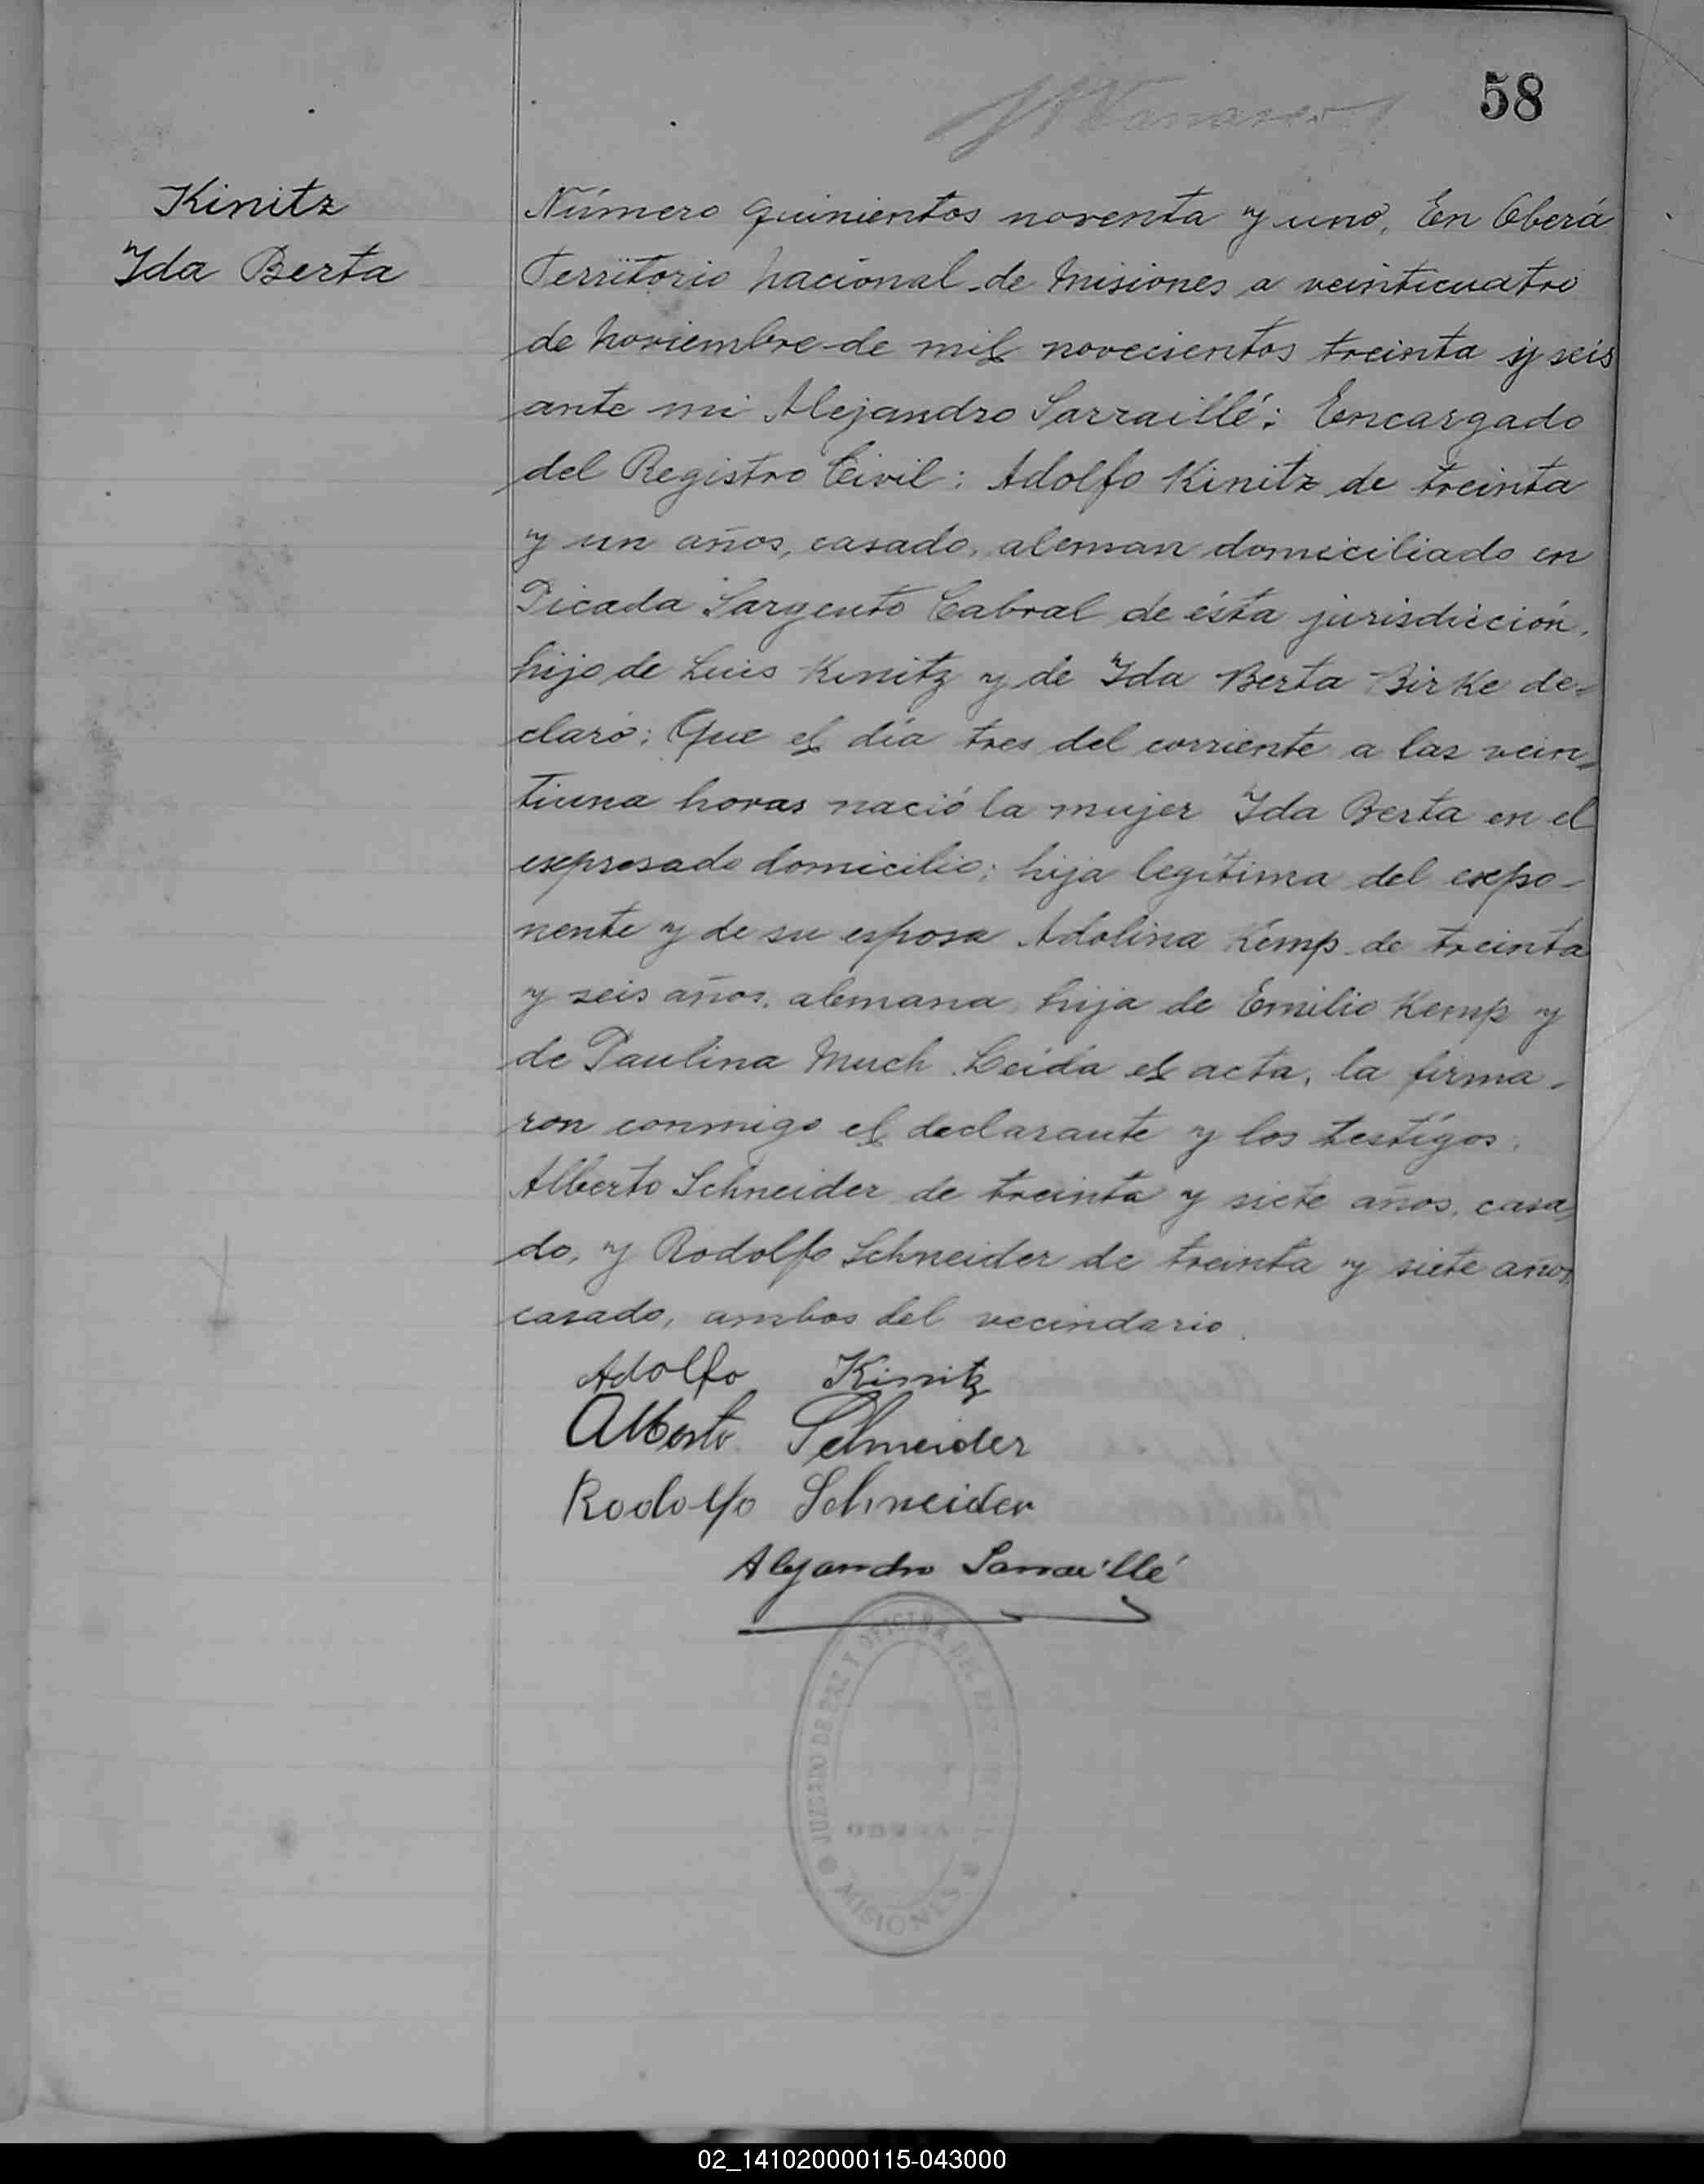 58
Kinitz
Ida Berta
Número quinientos noventa y uno, En Oberá
Territorio nacional de Misiones a veinticuatro
de noviembre de mil novecientos treinta y seis
ante mi Alejandro Sarraillé: Encargado
del Registro Civil: Adolfo Kinitz de treinta
y un años, casado, aleman domiciliado en
Picada Sargento Cabral de ésta jurisdicción,
hijo de Luis Kinitz y de Ida Berta Birke de-
claró: Que el día tres del corriente a las vein-
tiuna horas nació la mujer Ida Berta en el
expresado domicilio; hija legítima del expo-
nente y de su esposa Adolina Kemp de treinta
y seis años, alemana, hija de Emilio Kemp y
de Paulina Much. Leída el acta, la firma-
ron conmigo el declarante y los testigos,
Alberto Schneider de treinta y siete años, casa-
do, y Rodolfo Schneider de treinta y siete años,
casado, ambos del vecindario.
Adolfo Kinitz
Alberto Schneider
Rodolfo Schneider
Alejandro Sarraillé
JUZGADO DE PAZ Y OFICINA DEL
OBERA
MISIONES
02_141020000115-043000